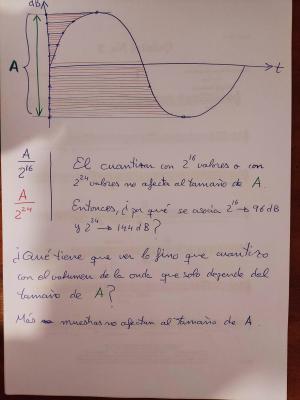 dB
A
t
A
2^16
A
2^24
El cuantizar con 2^16 valores o con
2^24 valores no afecta al tamaño de A.
Entonces, ¿por qué se asocia 2^16 → 96 dB
y 2^24 → 144 dB?
¿Qué tiene que ver lo fino que cuantizo
con el volumen de la onda que solo depende del
tamaño de A?
Más muestras no afectan al tamaño de A.